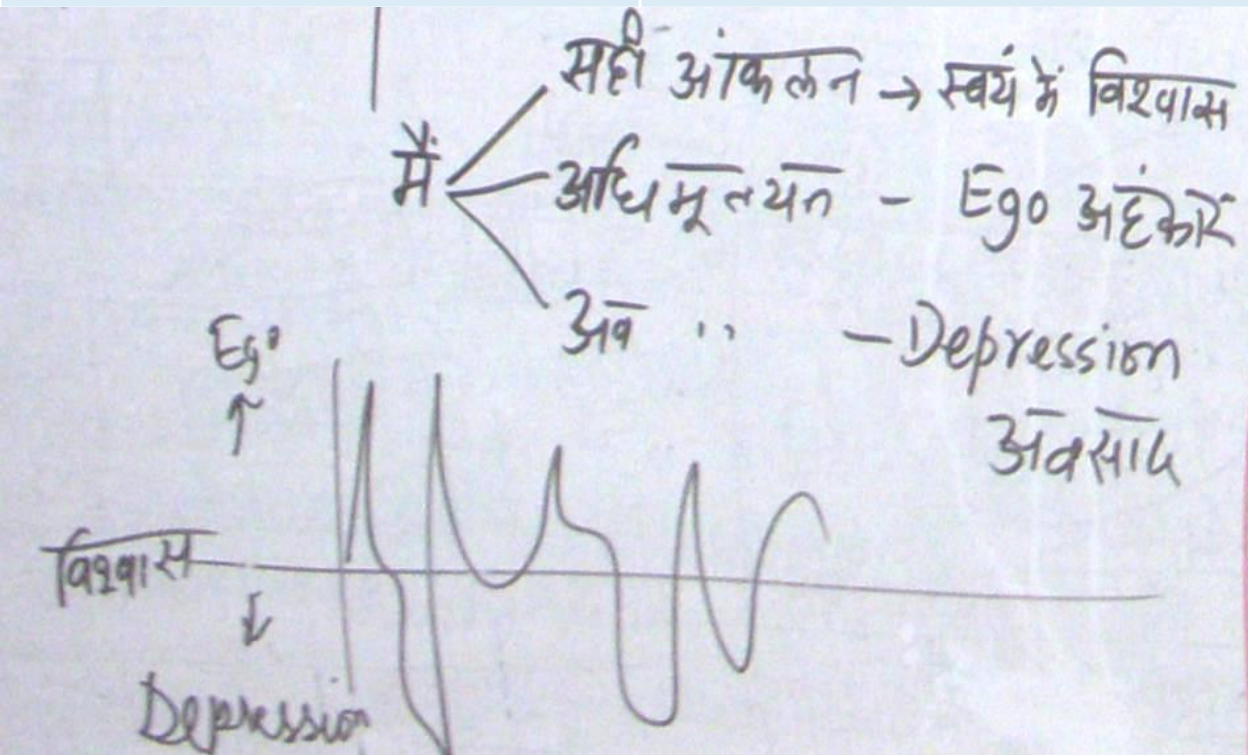 सही आंकलन → स्वयं में विश्वास
मैं
अधिमूल्यन - Ego अहंकार
अव " - Depression
अवसाद
Ego
↑
विश्वास
↓
Depression